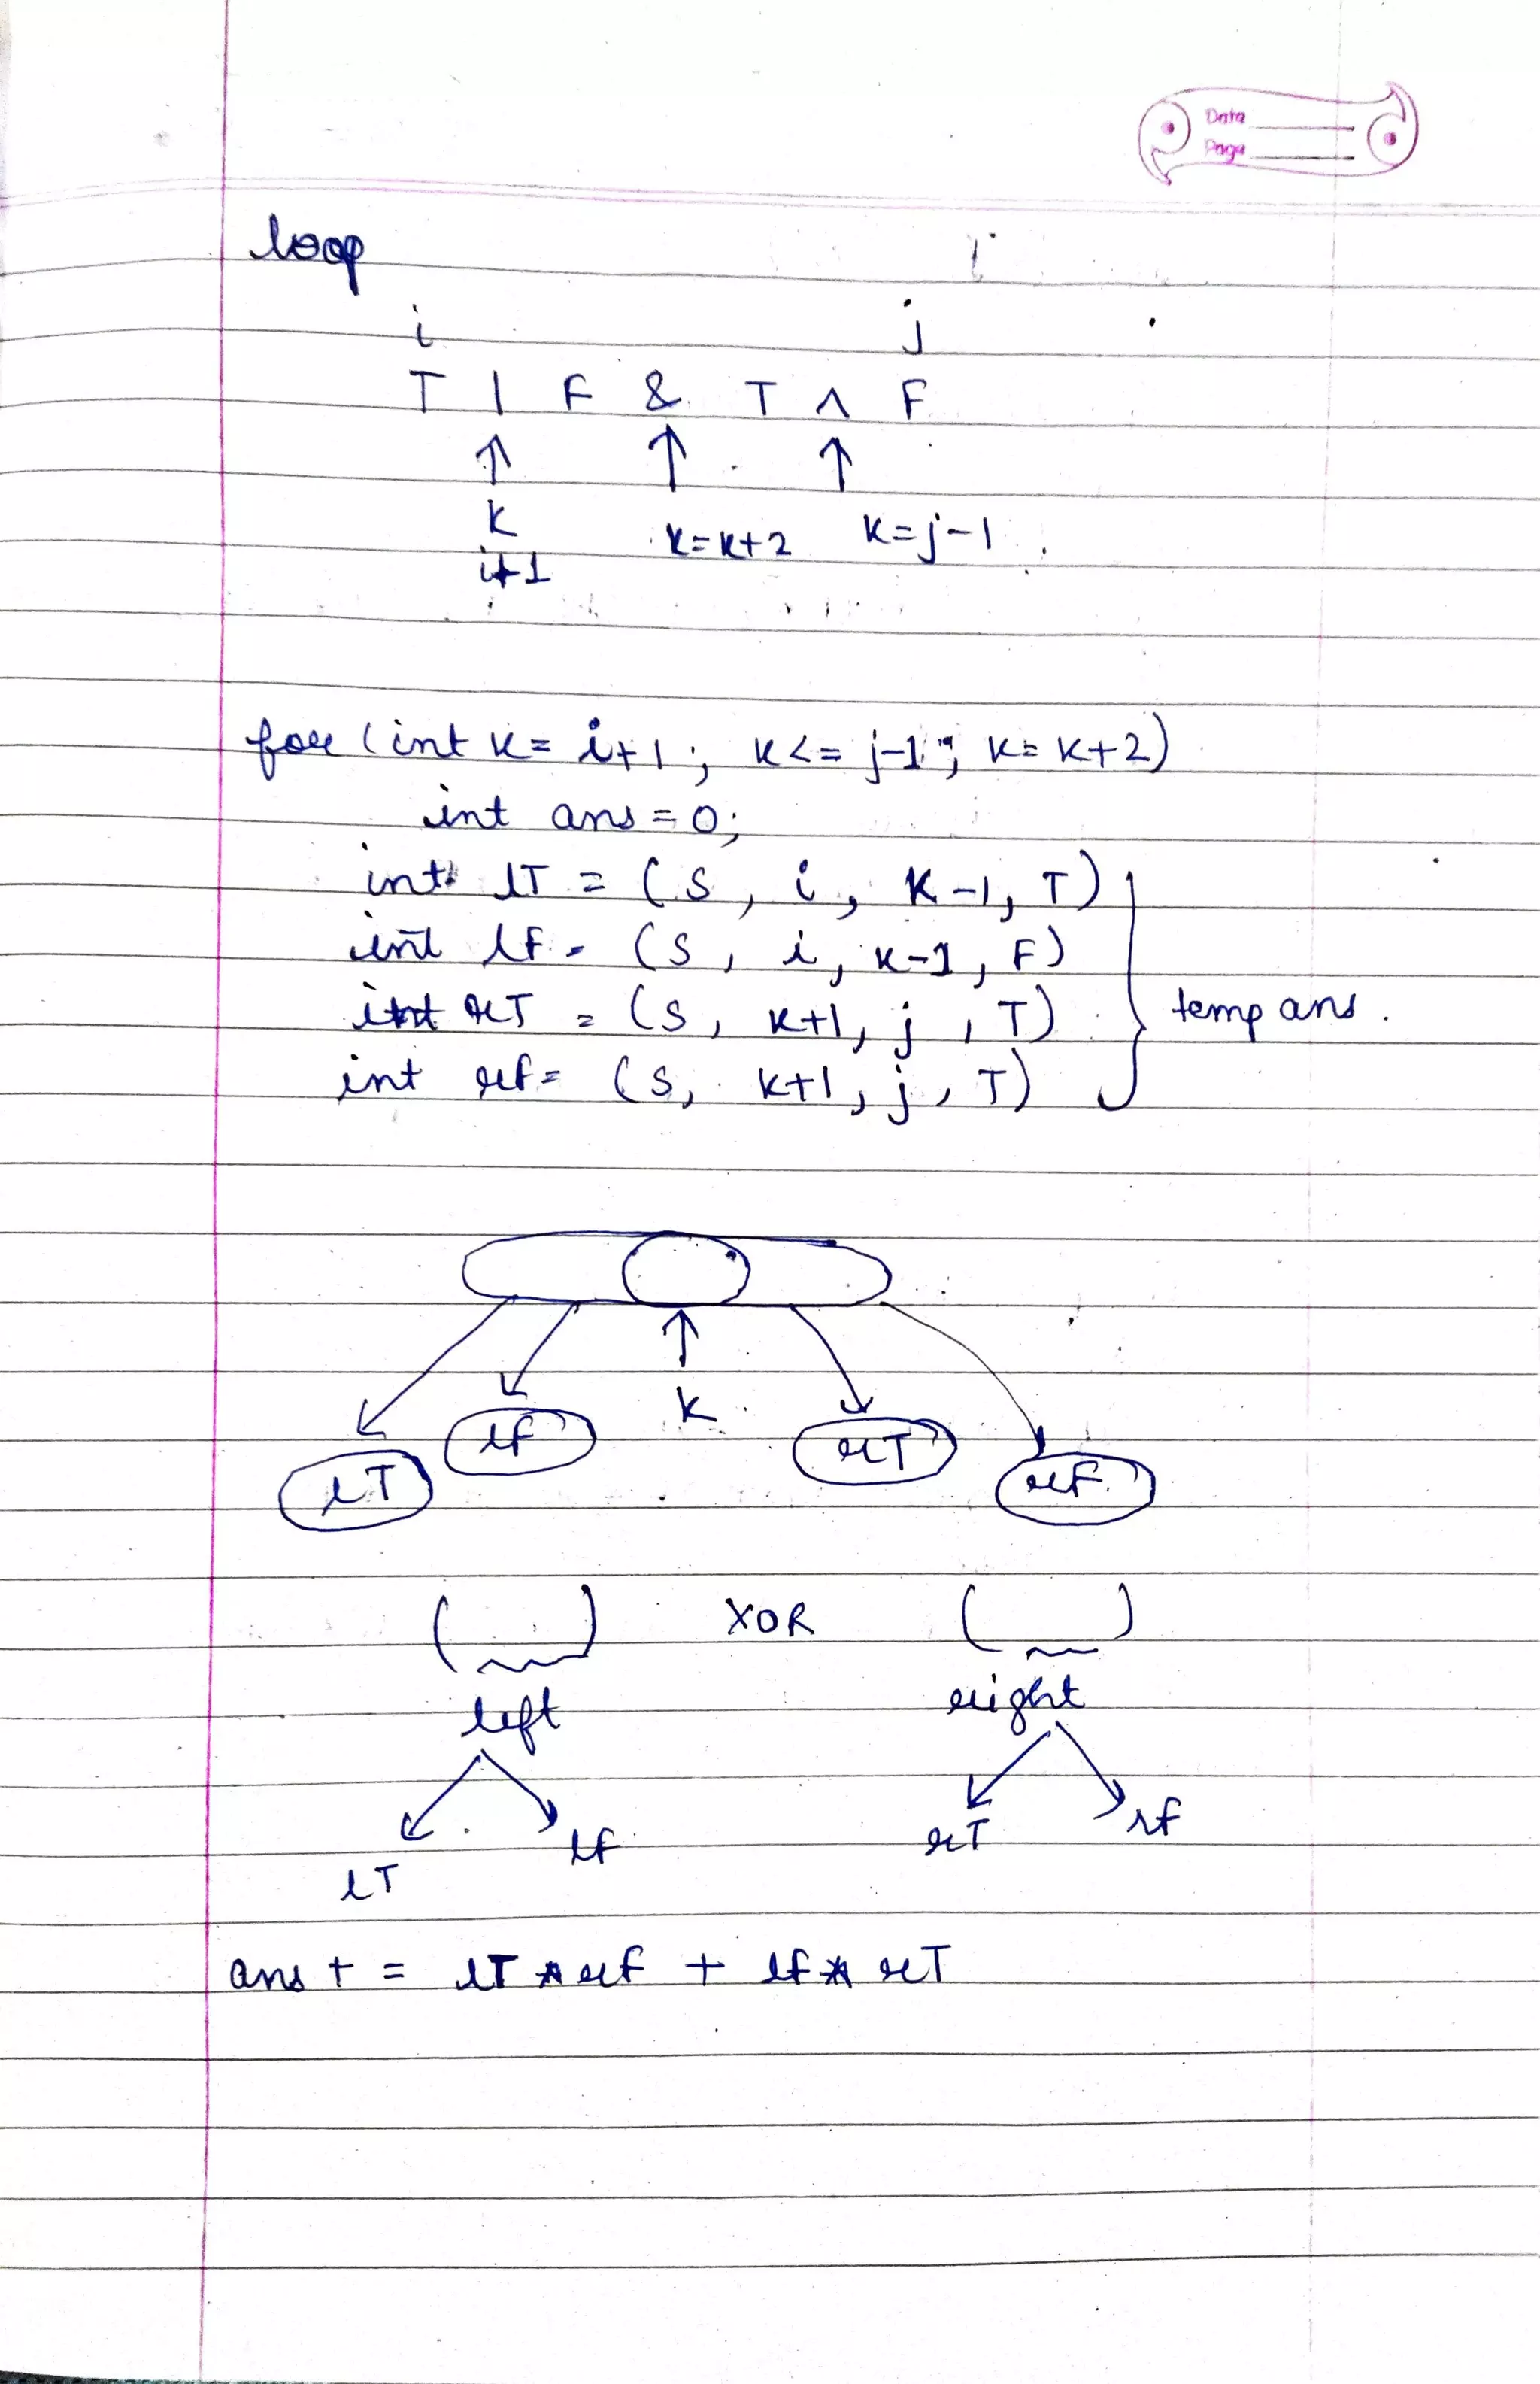 Data
Page
loop
i j
T | F & T ^ F
k k=k+2 k=j-1
i+1
for (int k= i+1; k<= j-1; k= k+2)
int ans = 0;
int lT = (S, i, k-1, T)
int lF = (S, i, k-1, F)
int rT = (S, k+1, j, T) temp ans.
int rf= (S, k+1, j, T)
k
lT lF rT rF
( ) XOR ( )
left right
lT lf rT rf
ans += lT * rf + lf * rT